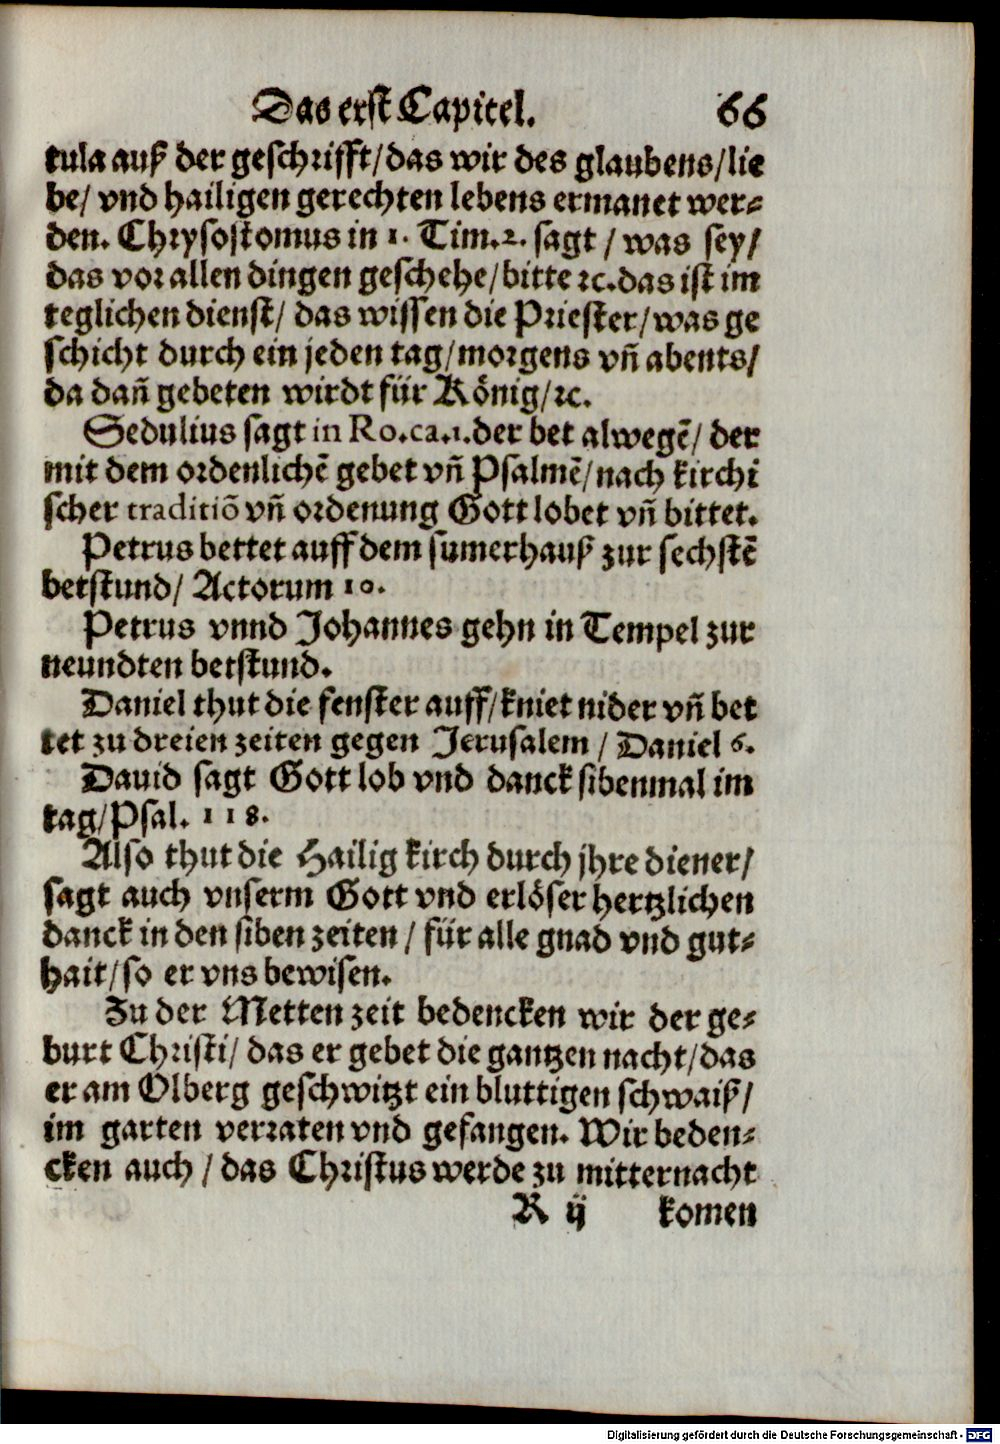 Das erst Capitel. 66
tula auß der geschrifft/das wir des glaubens/lie
be/ vnd hailigen gerechten lebens ermanet wer⸗
den. Chrysostomus in 1. Tim.2. sagt / was sey/
das vor allen dingen geschehe/bitte ꝛc.das ist im
teglichen dienst/ das wissen die Priester/was ge
schicht durch ein jeden tag/morgens vñ abents/
da dañ gebeten wirdt für König/ꝛc.
Sedulius sagt in Ro.ca.1.der bet alwegẽ/ der
mit dem ordenlichẽ gebet vñ Psalmẽ/nach kirchi
scher traditiõ vñ ordenung Gott lobet vñ bittet.
Petrus bettet auff dem sumerhauß zur sechstẽ
betstund/ Actorum 10.
Petrus vnnd Johannes gehn in Tempel zur
neundten betstund.
Daniel thut die fenster auff/kniet nider vñ bet
tet zu dreien zeiten gegen Jerusalem / Daniel 6.
Dauid sagt Gott lob vnd danck sibenmal im
tag/Psal. 118.
Also thut die Hailig kirch durch jhre diener/
sagt auch vnserm Gott vnd erlöser hertzlichen
danck in den siben zeiten / für alle gnad vnd gut⸗
hait/so er vns bewisen.
Zu der Metten zeit bedencken wir der ge⸗
burt Christi/ das er gebet die gantzen nacht/das
er am Olberg geschwitzt ein bluttigen schwaiß/
im garten verraten vnd gefangen. Wir beden⸗
cken auch / das Christus werde zu mitternacht
R ij komen
Digitalisierung gefördert durch die Deutsche Forschungsgemeinschaft - DFG